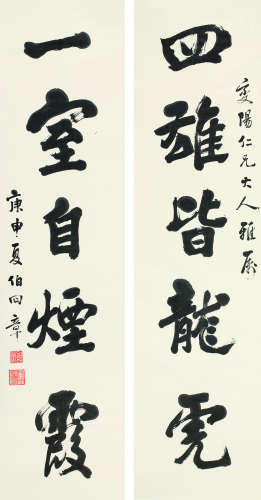 陽仁兄大人雅屬
四雄皆龍虎
一室自煙霞
庚申夏伯章